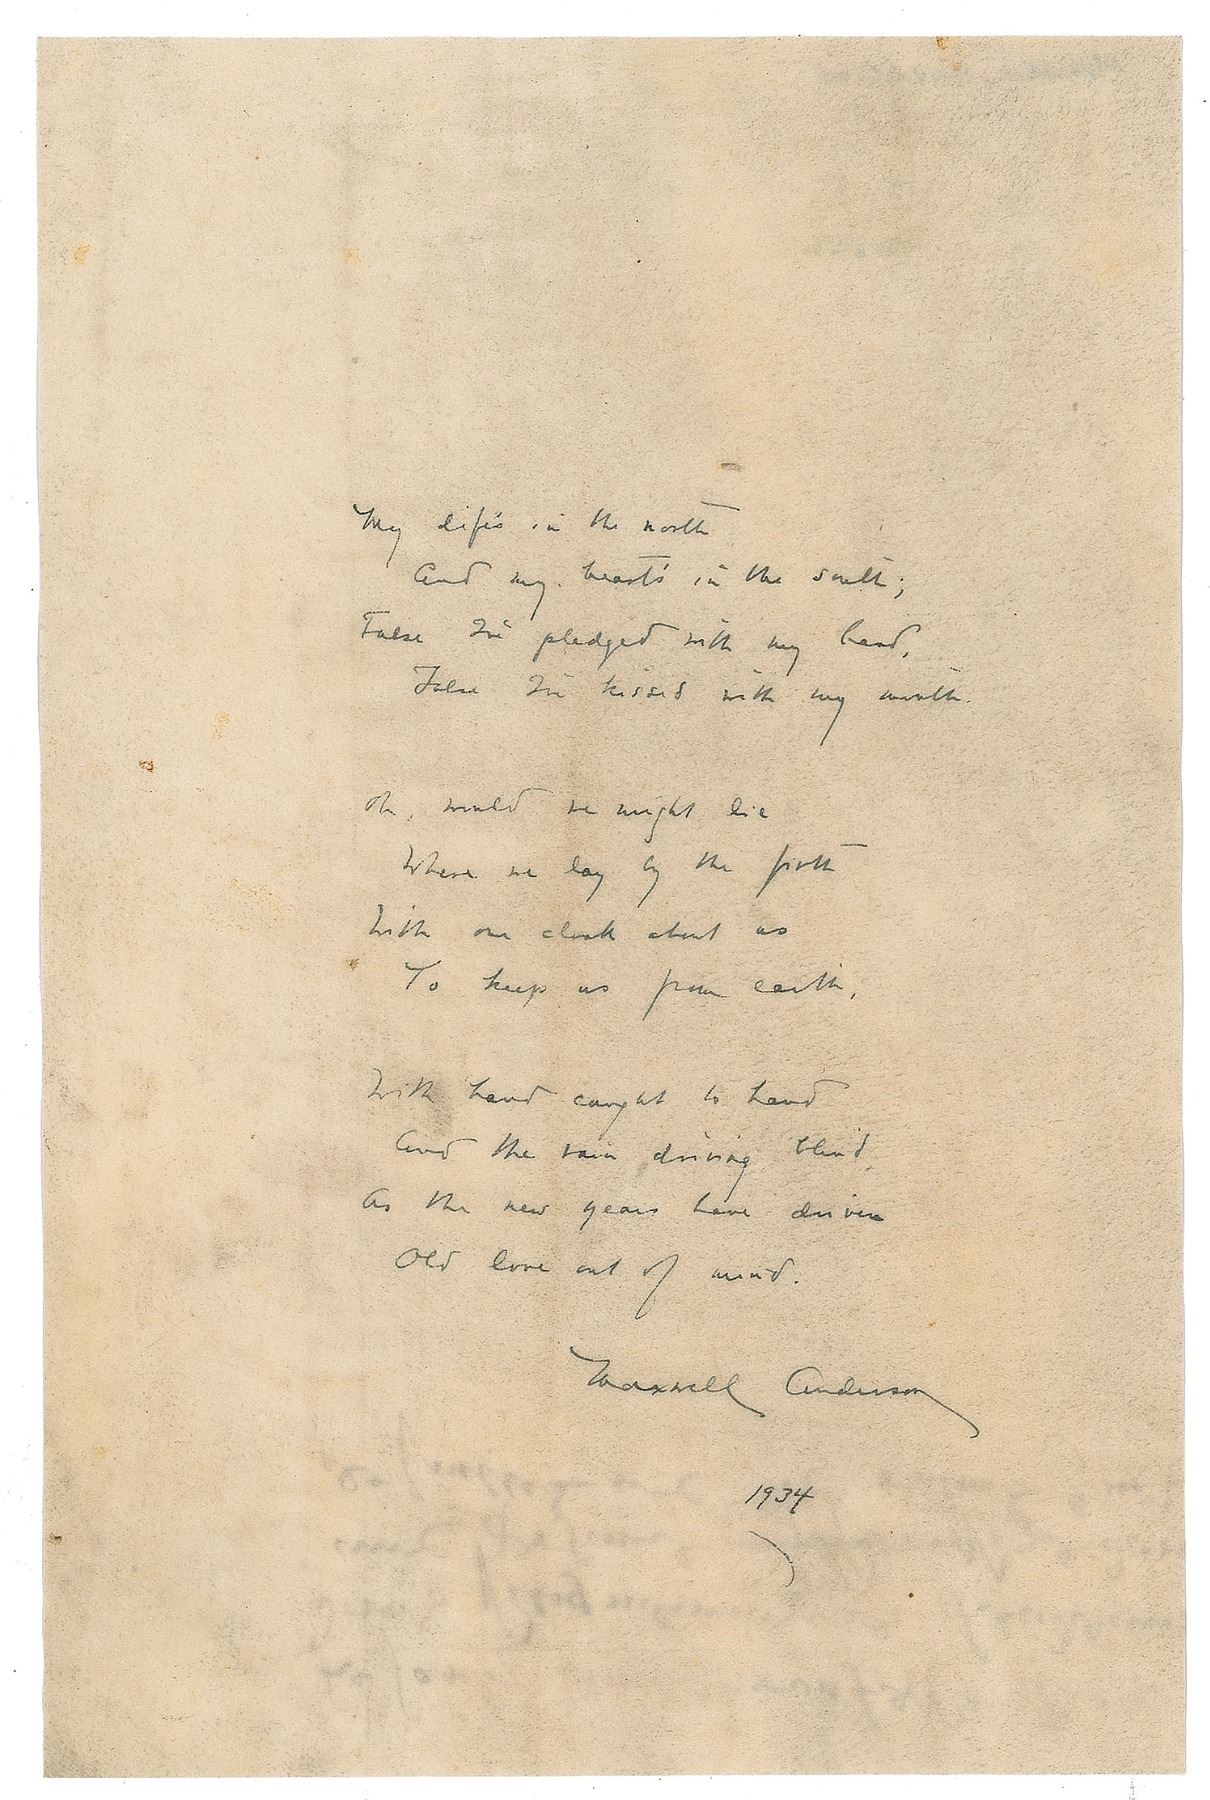 My life's in the north
And my heart's in the south;
False I've pledged with my hand,
False I've kissed with my mouth.
Oh, would we might lie
Where we lay by the firth
With one cloak about us
To keep us from earth,
With hand caught to hand
And the rain driving blind,
As the new years have driven
Old love out of mind.
Maxwell Anderson
1934